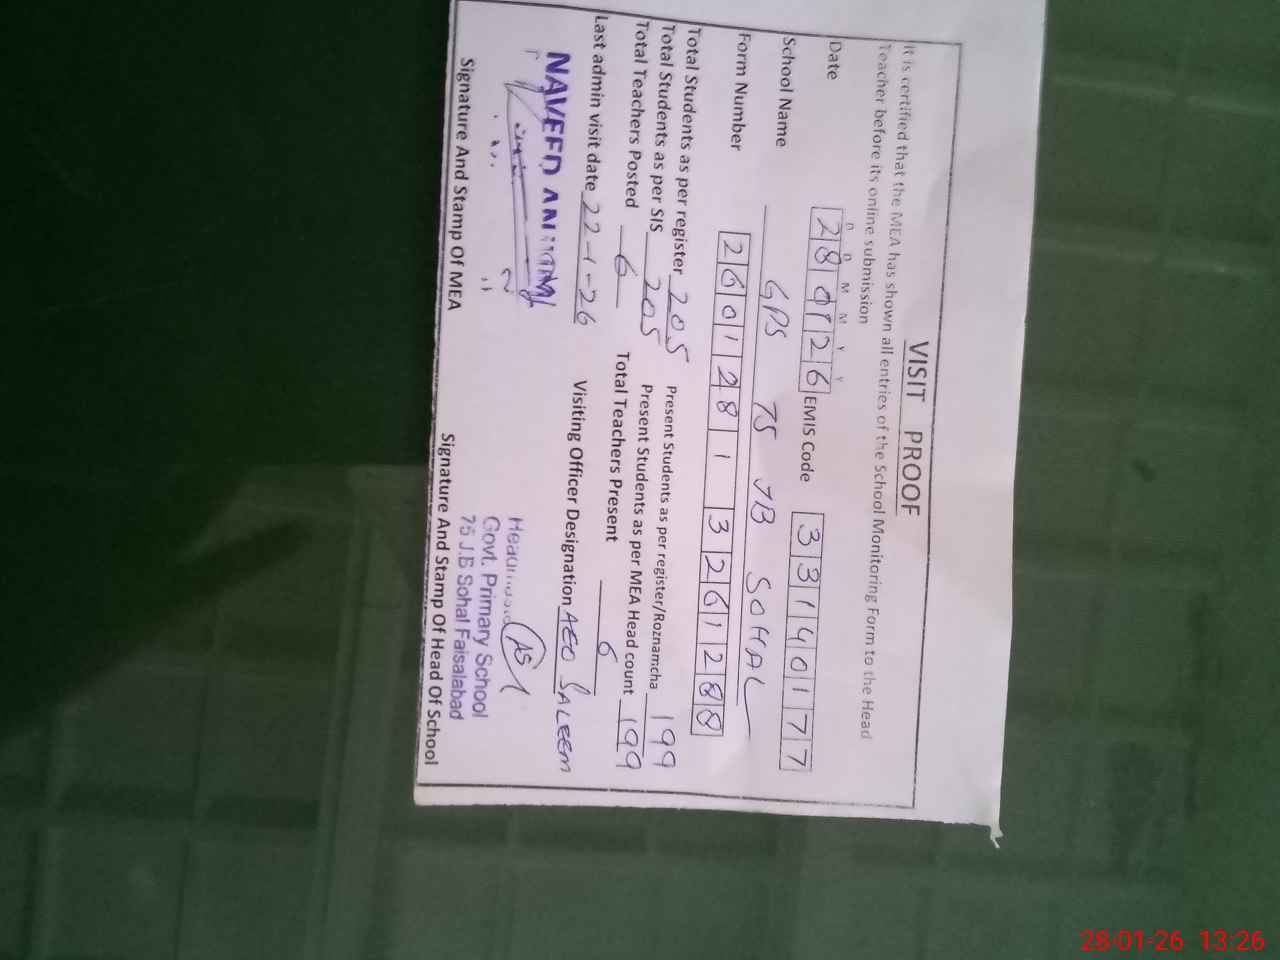 VISIT PROOF
It is certified that the MEA has shown all entries of the School Monitoring Form to the Head
Teacher before its online submission
D D M M Y Y
Date 280126 EMIS Code 33140177
School Name GPS 75 JB SOHAL
Form Number 26012811 3261288
Total Students as per register 205 Present Students as per register/Roznamcha 199
Total Students as per SIS 205 Present Students as per MEA Head count 199
Total Teachers Posted 6 Total Teachers Present 6
Last admin visit date 22-1-26 Visiting Officer Designation AEO SALEEM
NAVEED
Govt. Primary School
75 J.B Sohal Faisalabad
Signature And Stamp Of MEA Signature And Stamp Of Head Of School
28-01-26 13:26